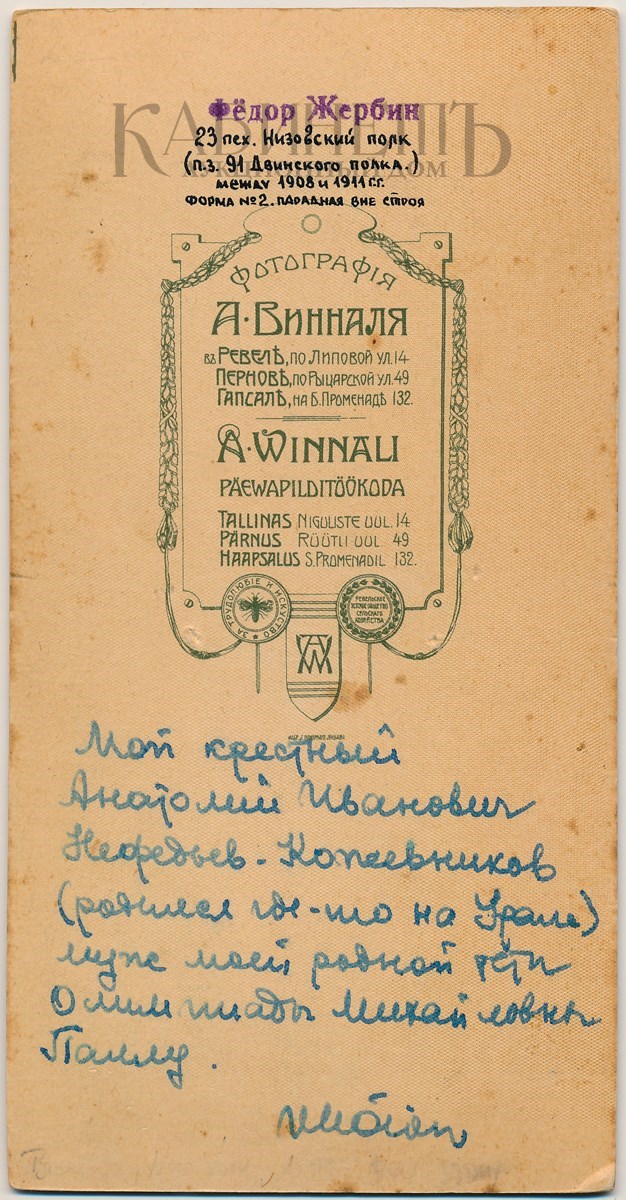 КАБИНЕТЪ
АУКЦИОННЫЙ ДОМ
Фёдор Жербин
23 пех. Низовский полк
(п.з. 91 Двинского полка.)
между 1908 и 1911 г.г.
ФОРМА №2. ПАРАДНАЯ ВНЕ СТРОЯ
ФОТОГРАФІЯ
А·ВИННАЛЯ
въ РЕВЕЛѢ, ПО ЛИПОВОЙ УЛ. 14
ПЕРНОВѢ, ПО РЫЦАРСКОЙ УЛ. 49
ГАПСАЛѢ, НА Б. ПРОМЕНАДѢ 132.
A·WINNALI
PÄEWAPILDITÖÖKODA
TALLINAS NIGULISTE UUL. 14
PÄRNUS RÜÜTLI UUL 49
HAAPSALUS S. PROMENADIL 132.
ЗА ТРУДОЛЮБІЕ И ИСКУССТВО
РЕВЕЛЬСКОЕ
ЭСТСКОЕ ОБЩЕСТВО
СЕЛЬСКАГО
ХОЗЯЙСТВА
AW
Мой крестный
Анатолий Иванович
Нефедьев-Кожевников
(родился где-то на Урале)
муж моей родной тёти
Олимпиады Михайловны
Паллу.